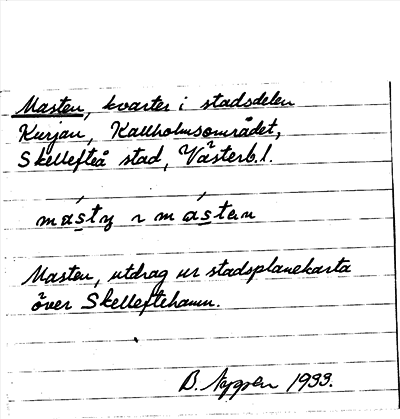 Masten, kvarter i stadsdelen
Kurjan, Kallholmsområdet,
Skellefteå stad, Västerb.l.
Masten, utdrag ur stadsplanekarta
över Skelleftehamn.
B. Nygren 1933.